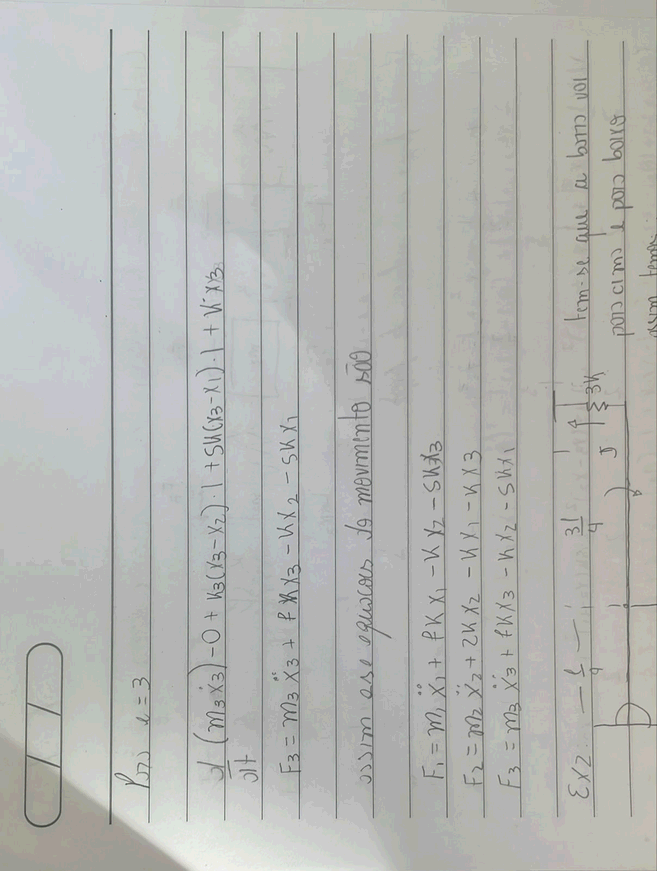 Para i=3
d/dt (m3ẍ3) - 0 + k3(x3-x2)·1 + 5k(x3-x1)·1 + k x3
F3 = m3ẍ3 + 7kx3 - kx2 - 5kx1
assim as equações de movimento são
F1 = m1ẍ1 + 7kx1 - kx2 - 5kx3
F2 = m2ẍ2 + 2kx2 - kx1 - kx3
F3 = m3ẍ3 + 7kx3 - kx2 - 5kx1
Ex2 — l/4 — 3l/4
tem-se que a barra vai
J 3k
para cima e para baixo
assim temos: